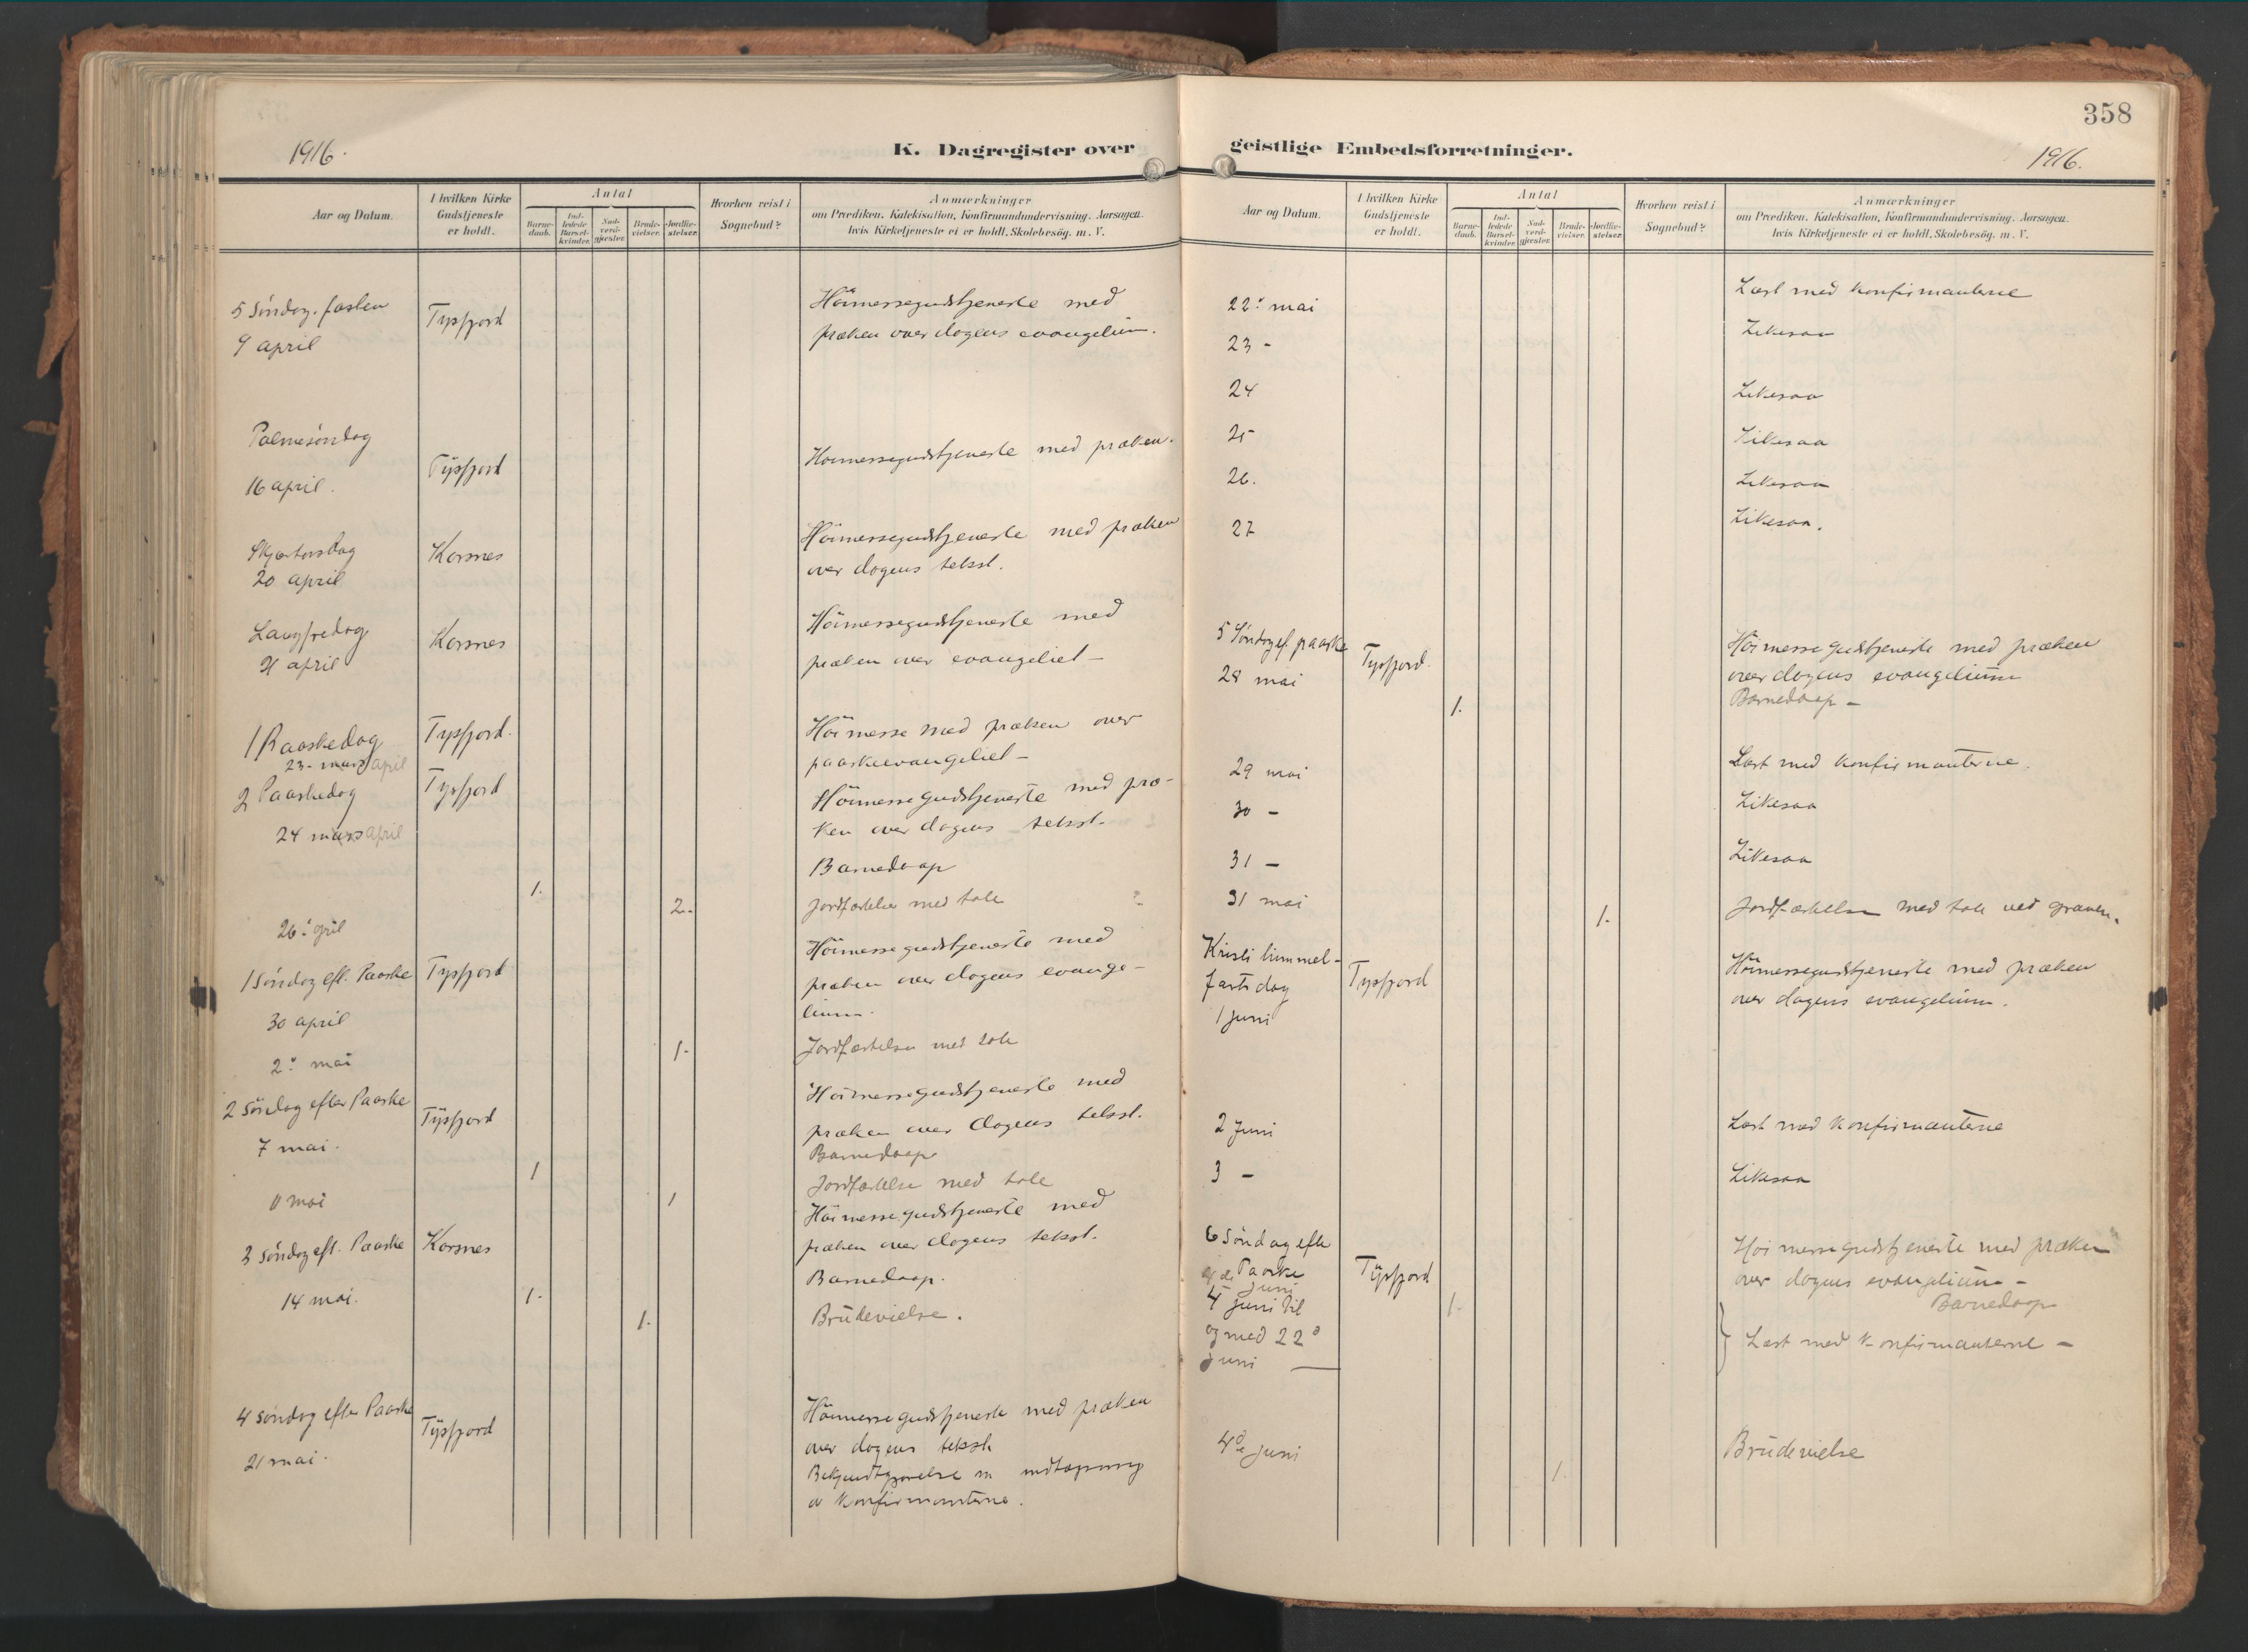 358
1916.
K. Dagregister over
Aar og Datum.
I hvilken Kirke
Gudstjeneste
er holdt.
Antal
Barne-
daab.
Ind-
ledede
Barsel-
kvinder.
Nad-
verd-
gjester.
Brude-
vielser.
Jordfæ-
stelser.
Hvorhen reist i
Sognebud?
Anmærkninger
om Prædiken, Katekisation, Konfirmandundervisning, Aarsagen,
hvis Kirketjeneste ei er holdt, Skolebesøg, m. V.
5 Söndag. fasten
9 april
Tysfjord
Höimessegudstjeneste med
præken over dagens evangelium.
Palmesöndag
16 april.
Tysfjord
Höimessegudstjeneste med præken.
Skjærtorsdag
20 april
Korsnes
Höimessegudstjeneste med præken
over dagens tekst.
Langfredag
21 april
Korsnes
Höimessegudstjeneste med
præken over evangeliet –
1 Paaskedag
23. mars april
Tysfjord.
Höimesse med præken over
paaskeevangeliet –
2 Paaskedag
24 mars april
Tysfjord
Höimessegudstjeneste med præ-
ken over dagens tekst.
1. Barnedaap
26. april
2. Jordfæstelse med tale
1 Söndag eft. Paaske
30 april
Tysfjord
Höimessegudstjeneste med
præken over dagens evange-
lium.
2. mai
1. Jordfæstelse med tale
2 Söndag efter Paaske
7 mai.
Tysfjord
Höimessegudstjeneste med
præken over dagens tekst.
1 Barnedaap
11 mai
1 Jordfæstelse med tale
3 Söndag eft. Paaske
14 mai.
Korsnes
Höimessegudstjeneste med
præken over dagens tekst.
1. Barnedaap.
1. Brudevielse.
4 Söndag efter Paaske
21 mai.
Tysfjord
Höimessegudstjeneste med præken
over dagens tekst
Bekjendtgjørelse m indtegning
av konfirmanterne.
geistlige Embedsforretninger.
1916.
Aar og Datum.
I hvilken Kirke
Gudstjeneste
er holdt.
Antal
Barne-
daab.
Ind-
ledede
Barsel-
kvinder.
Nad-
verd-
gjester.
Brude-
vielser.
Jordfæ-
stelser.
Hvorhen reist i
Sognebud?
Anmærkninger
om Prædiken, Katekisation, Konfirmandundervisning, Aarsagen,
hvis Kirketjeneste ei er holdt, Skolebesøg, m. V.
22. mai
Læst med konfirmanterne
23 –
Likesaa
24
Likesaa
25
Likesaa
26.
Likesaa
27
Likesaa.
5 Söndag ef. paaske
28 mai
Tysfjord.
Höimessegudstjeneste med præken
over dagens evangelium
1. Barnedaap –
29 mai
Læst med konfirmanterne.
30 –
Likesaa
31 –
Likesaa
31 mai
1. Jordfæstelse med tale ved graven.
Kristi himmel-
fartsdag
1 juni
Tysfjord
Höimessegudstjeneste med præken
over dagens evangelium.
2 Juni
Læst med konfirmanterne
3 –
Likesaa
6 Söndag efte
4de Paaske
juni
Tysfjord
Höimessegudstjeneste med præken
over dagens evangelium –
1. Barnedaap
4 juni til
og med 22
Juni –
Læst med konfirmanterne –
4de juni
1. Brudevielse